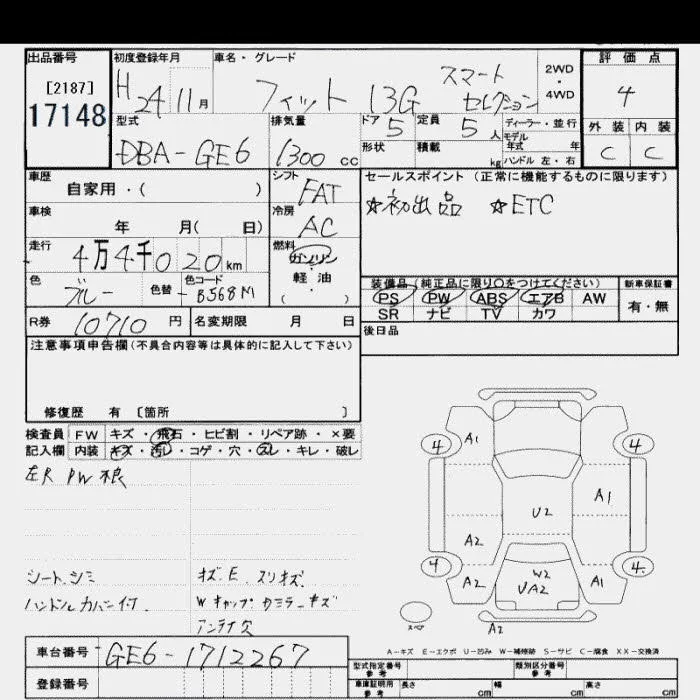 出品番号 初度登録年月 車名・グレード 2WD ・ 4WD 評価点
[2187]
17148
H 24 11 月 フィット 13G スマート セレクション 4
型式 排気量 ドア 定員 ディーラー・並行 外装 内装
DBA-GE6 1300 cc 5 5 人 モデル 年式 年 C C
形状 積載 kg ハンドル 左・右
車歴 シフト セールスポイント (正常に機能するものに限ります)
自家用・( ) FAT ☆初出品 ☆ETC
車検 冷房
年 月( 日) AC
走行 燃料
4万4千020 km ガソリン
色 色替 色コード 軽油
ブルー - B568M ( )
装備品(純正品に限り○をつけてください) 新車保証書
PS PW ABS エアB AW 有・無
SR ナビ TV カワ
R券 10710 円 名変期限 月 日
後日品
注意事項申告欄(不具合内容等は具体的に記入して下さい)
修復歴 有 〔箇所 〕
検査員 FW キズ・飛石・ヒビ割・リペア跡・×要
記入欄 内装 キズ・汚レ・コゲ・穴・スレ・キレ・破レ
左R PW 根
シート.シミ
ハンドルカバー付.
キズ.E.スリキズ
Wキャップ カミラーキズ
アンテナ欠
4 A1 4
A1
U2
A2
4 A2 W2 UA2 A1 4
スペア A2
A-キズ E-エクボ U-凹み W-補修跡 S-サビ C-腐食 XX-交換済
車台番号 GE6-1712267
登録番号
型式指定番号 参考 類別区分番号 参考
車庫証明用 参考 長さ cm 幅 cm 高さ cm